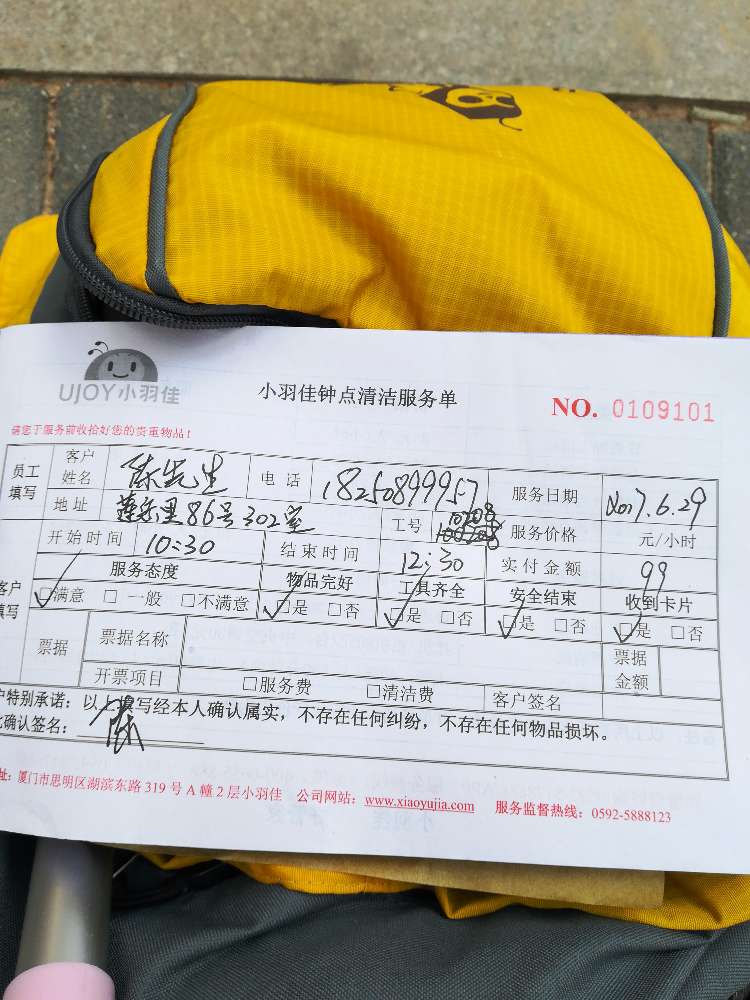 UJOY小羽佳
小羽佳钟点清洁服务单
NO. 0109101
请您于服务前收拾好您的贵重物品!
员工填写 客户姓名 陈先生 电话 18250899957 服务日期 2017.6.29
地址 莲乐里86号302室 工号 10708 服务价格 元/小时
开始时间 10:30 结束时间 12:30 实付金额 99
客户填写 服务态度 物品完好 工具齐全 安全结束 收到卡片
☑满意 □一般 □不满意 ☑是 □否 ☑是 □否 ☑是 □否 ☑是 □否
票据 票据名称 票据金额
开票项目 □服务费 □清洁费 客户签名
户特别承诺:以上填写经本人确认属实,不存在任何纠纷,不存在任何物品损坏。
确认签名: 陈
址:厦门市思明区湖滨东路319号A幢2层小羽佳 公司网站:www.xiaoyujia.com 服务监督热线:0592-5888123